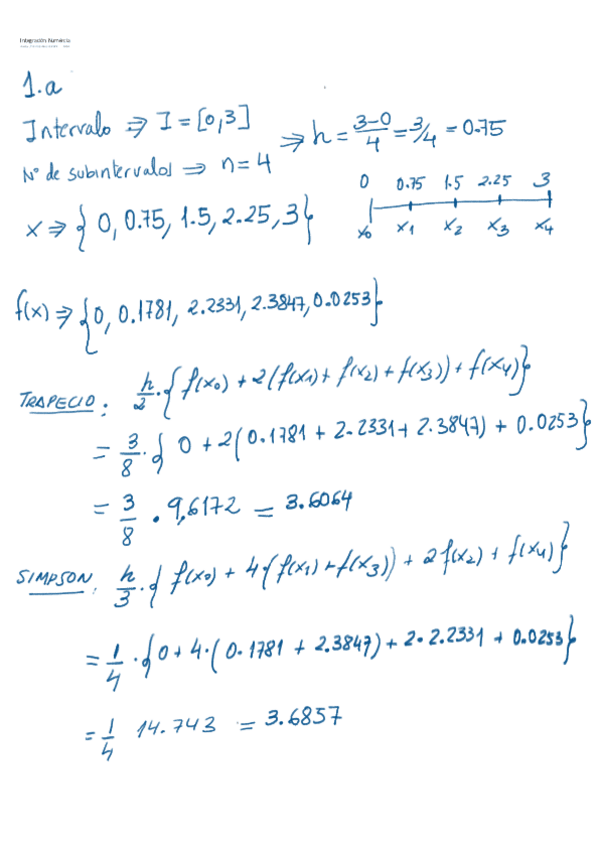 Integración Numérica
1.a
Intervalo ⇒ I = [0,3]
⇒ h = 3-0/4 = 3/4 = 0.75
Nº de subintervalos ⇒ n = 4
0 0.75 1.5 2.25 3
x₀ x₁ x₂ x₃ x₄
x ⇒ { 0, 0.75, 1.5, 2.25, 3 }
f(x) ⇒ { 0, 0.1781, 2.2331, 2.3847, 0.0253 }
TRAPECIO: h/2 · { f(x₀) + 2(f(x₁) + f(x₂) + f(x₃)) + f(x₄) }
= 3/8 · { 0 + 2(0.1781 + 2.2331 + 2.3847) + 0.0253 }
= 3/8 · 9,6172 = 3.6064
SIMPSON: h/3 · { f(x₀) + 4(f(x₁) + f(x₃)) + 2f(x₂) + f(x₄) }
= 1/4 · { 0 + 4·(0.1781 + 2.3847) + 2·2.2331 + 0.0253 }
= 1/4 14.743 = 3.6857